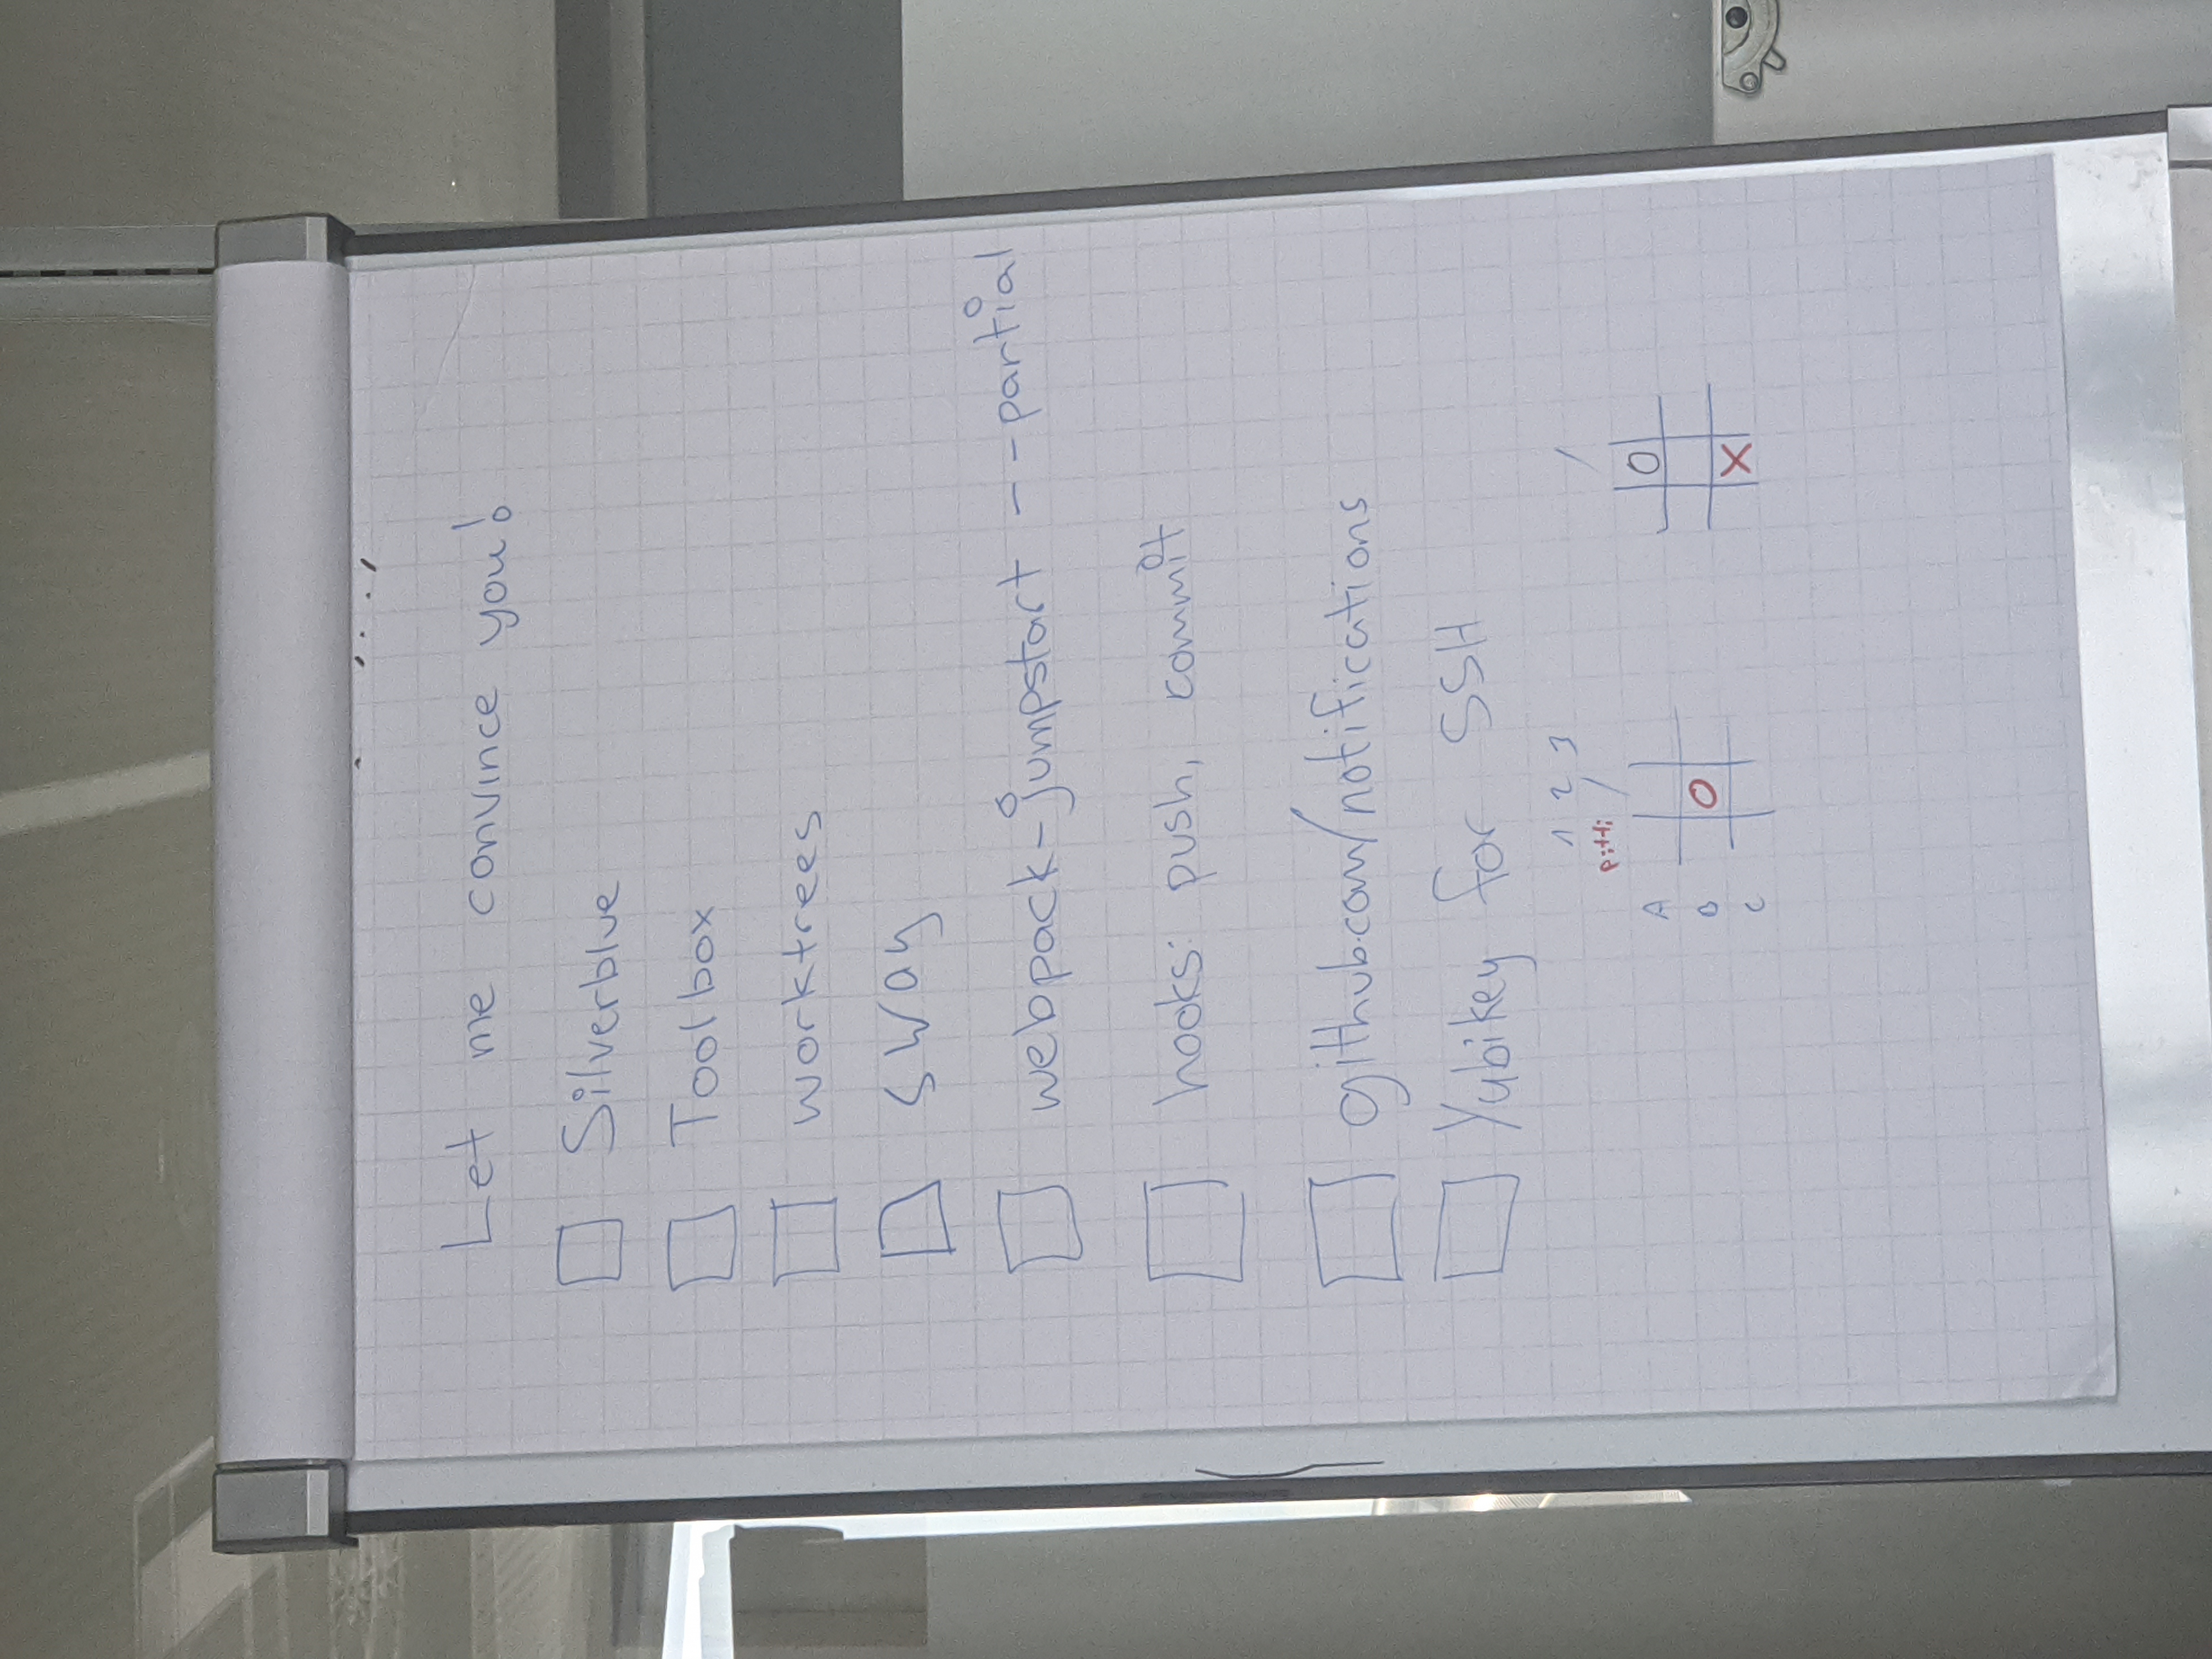 Let me convince you!
Silverblue
Toolbox
worktrees
sway
webpack-jumpstart --partial
hooks: push, commit
github.com/notifications
Yubikey for SSH
1 2 3
pitti /
/
A
B O
C
O
X